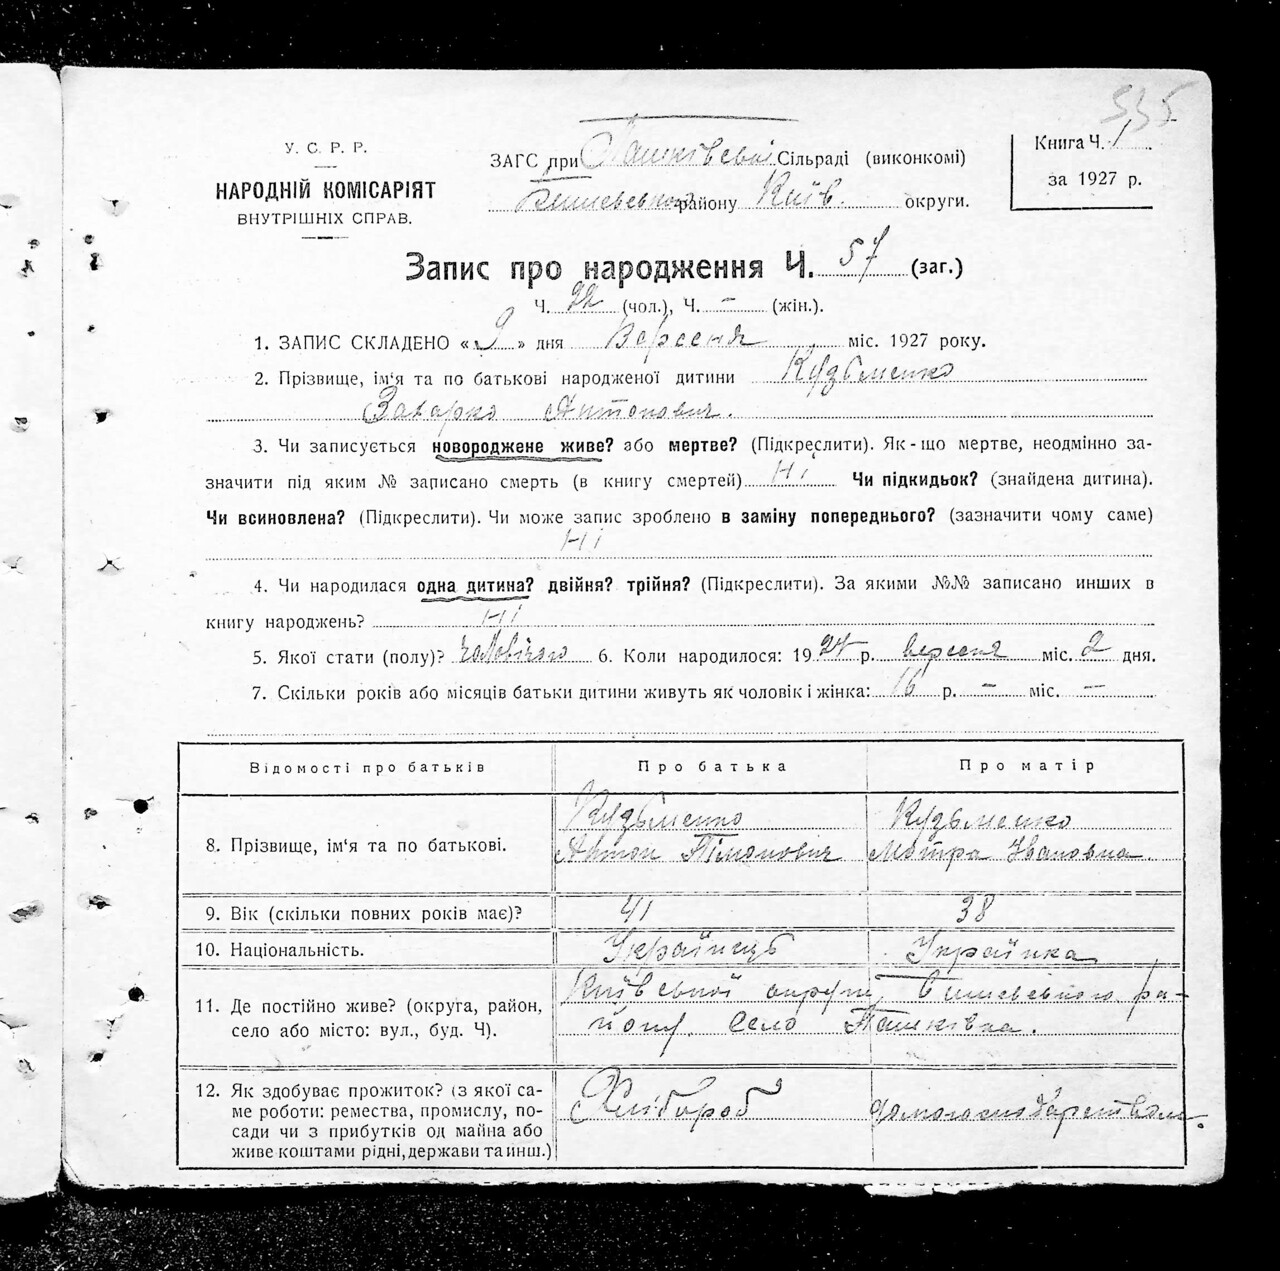 535
У. С. Р. Р.
НАРОДНІЙ КОМІСАРІЯТ
ВНУТРІШНІХ СПРАВ.
ЗАГС при Пашківській Сільраді (виконкомі)
району Київ. округи.
Книга Ч. 1
за 1927 р.
Запис про народження Ч. 57 (заг.)
Ч. 22 (чол.), Ч. – (жін.).
1. ЗАПИС СКЛАДЕНО « 9 » дня Вересня міс. 1927 року.
2. Прізвище, ім'я та по батькові народженої дитини Кузьменко
Захарко Антонович.
3. Чи записується новороджене живе? або мертве? (Підкреслити). Як-що мертве, неодмінно за-
значити під яким № записано смерть (в книгу смертей) Ні Чи підкидьок? (знайдена дитина).
Чи всиновлена? (Підкреслити). Чи може запис зроблено в заміну попереднього? (зазначити чому саме)
Ні
4. Чи народилася одна дитина? двійня? трійня? (Підкреслити). За якими №№ записано инших в
книгу народжень? Ні
5. Якої стати (полу)? чоловічого 6. Коли народилося: 1927 р. вересня міс. 2 дня.
7. Скільки років або місяців батьки дитини живуть як чоловік і жінка: 16 р. – міс. –
Відомості про батьків Про батька Про матір
Кузьменко Кузьменко
8. Прізвище, ім'я та по батькові. Антон Тімонович Мотра Івановна.
9. Вік (скільки повних років має)? 41 38
10. Національність. Українець Українка
Київської округи, ра-
11. Де постійно живе? (округа, район,
село або місто: вул., буд. Ч). йону. Село Пашківка.
12. Як здобуває прожиток? (з якої са-
ме роботи: ремества, промислу, по-
сади чи з прибутків од майна або
живе коштами рідні, держави та инш.)
Хлібороб домогосподарством.